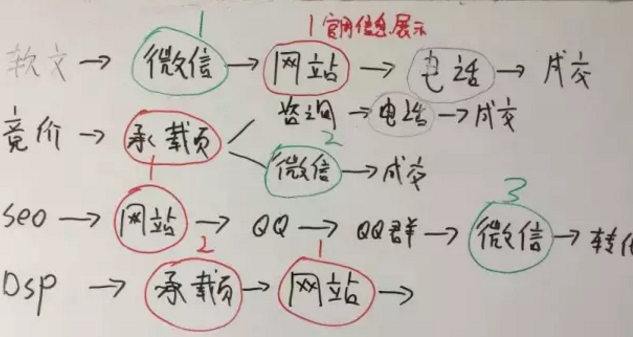 1 1 官网信息展示
软文 → 微信 → 网站 → 电话 → 成交
咨询 → 电话 → 成交
竞价 → 承载页
2
微信 → 成交
1 3
seo → 网站 → QQ → QQ群 → 微信 → 转化
2 1
Dsp → 承载页 → 网站 →